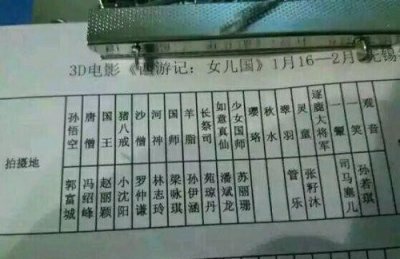 3D电影《西游记：女儿国》1月16—2月 无锡
拍摄地
孙悟空
唐僧
国王
猪八戒
沙僧
河神
国师
羊脂
长祭司
如意真仙
少女国师
璎珞
秋水
翠羽
灵童
逐鹿大将军
一颦
一笑
观音
郭富城
冯绍峰
赵丽颖
小沈阳
罗仲谦
林志玲
梁咏琪
孙伊涵
苑琼丹
潘斌龙
苏丽珊
管乐
张籽沐
司马廉儿
孙若琪